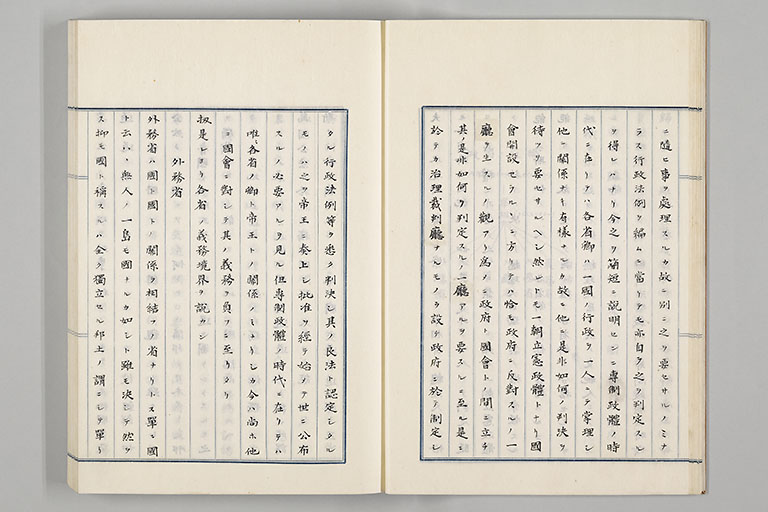 ニ隨ヒ事ヲ處理スルカ故ニ別ニ之ヲ要セサルノミナ
ラス行政法例ヲ編ムニ當リテモ亦自ラ之ヲ判定スル
ヲ得レハナリ今之ヲ簡短ニ説明センニ專制政體ノ時
代ニ在リテハ各省卿ハ一國ノ行政ヲ一人ニテ掌理シ
他ニ關係ナキ有樣ナルカ故ニ他ニ是非如何ノ判決ヲ
待ツヲ要セサルヘシ然レトモ一朝立憲政體トナリ國
會開設セラルヽニ方リテハ恰モ政府ニ反對スルノ一
廳ヲ生スルノ觀アリ爲メニ政府ト國會トノ間ニ立チ
其ノ是非如何ヲ判定スルノ一廳アルヲ要スルニ至ル是ニ
於テカ治理裁判廳ナルモノヲ設ケ政府ニ於テ制定シ
タル行政法例等ヲ悉ク判決シ其ノ良法ト認定シタル
モノハ之ヲ帝王ニ奏上シ批准ヲ經テ始メテ世ニ公布
スルノ必要アルヲ見ル但專制政體ノ時代ニ在リテハ
唯々各省ノ卿ト帝王トノ關係ノミナリシカ今ハ尚ホ他
ニ國會ニ對シテ其ノ義務ヲ負フニ至リタリ
扨是レヨリ各省ノ義務境界ヲ説カン
外務省
外務省ハ國ト國トノ關係ヲ相結フノ省ナリトス單ニ國
ト云ハヽ無人ノ一島モ國ナルカ如シト雖モ決シテ然ラ
ス抑モ國ト稱スルハ全ク獨立セル邦土ノ謂ニシテ單リ